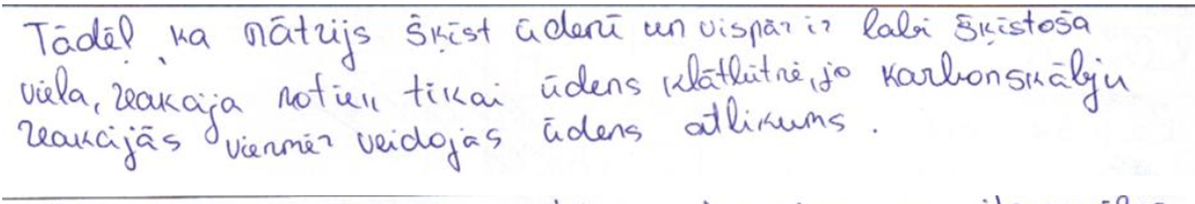 Tādēļ ka nātrijs šķīst ūdenī un vispār ir labi šķīstoša
viela, reakcija notiek tikai ūdens klātbūtnē, jo karbonskābju
reakcijās vienmēr veidojas ūdens atlikums.